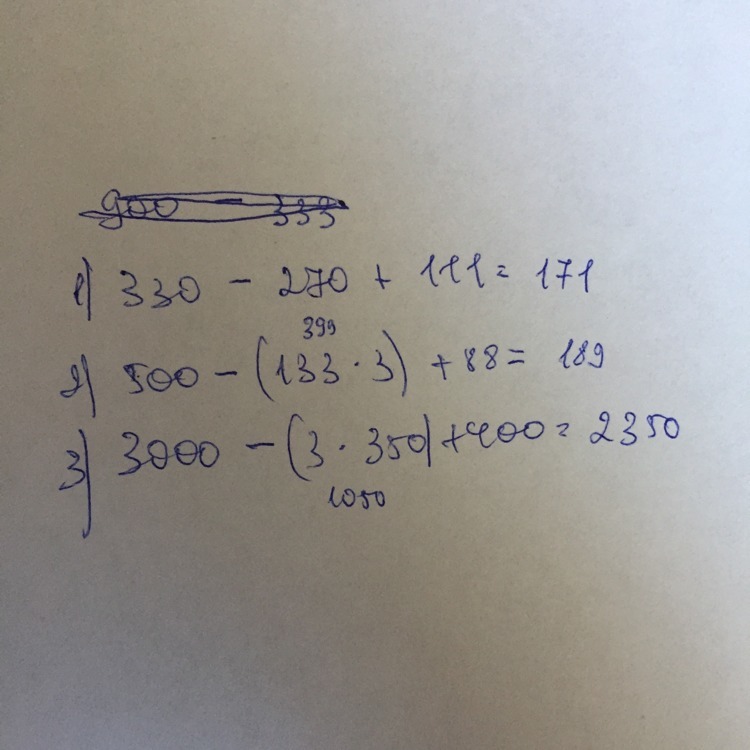 900 - 333
1) 330 - 270 + 111 = 171
399
2) 500 - (133 · 3) + 88 = 189
3) 3000 - (3 · 350) + 400 = 2350
1050